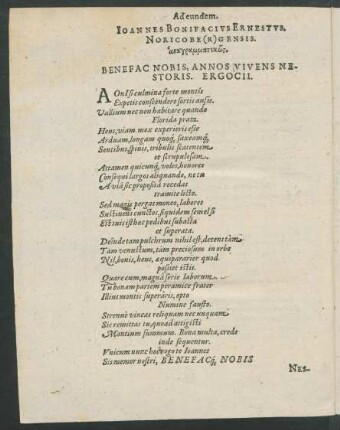 Ad eundem.
IOANNES BONIFACIVS ERNESTVS,
NORICOBE(R)GENSIS.
BENEFAC NOBIS, ANNOS VIVENS NE-
STORIS. ERGOCII.
culmina forte montis
Expetis conscendere fortis ansis,
Vallium nec non habitare quando
Florida prata.
Heus, viam max experieris esse
Arduam, longam quoq, saxeamq,
Sentibus, spinis, tribulis scatentem
et scrupulosam.
Attamen quicunq, voles, honores
Consequi largos aliquando, ne tu
A viâ sic propositâ recedas
tramite licto.
Sed magis pergas moneo, labores
Sustinens cunctos, siquidem semel si
isthæc pedibus subacta
et superata.
Deinde tam pulchrum nihil est, decens tam
Tam venustum, tam preciosum in orbe
Nil, bonis, heus, æquipararier quod
possiet istis.
Quare cum magna serie laborum
Tu bonam partem peramice frater
Illius montis superâris, opto
Numine fausto.
Strenue vincas reliquam nec unquam
Sis remittas tu, quoad attigisti
Montium summum. Bona multa, crede
inde sequentur.
Vnicum nunc hoc rogo te Ioannes
Sis memor nostri, BENEFACq, NOBIS
NES-